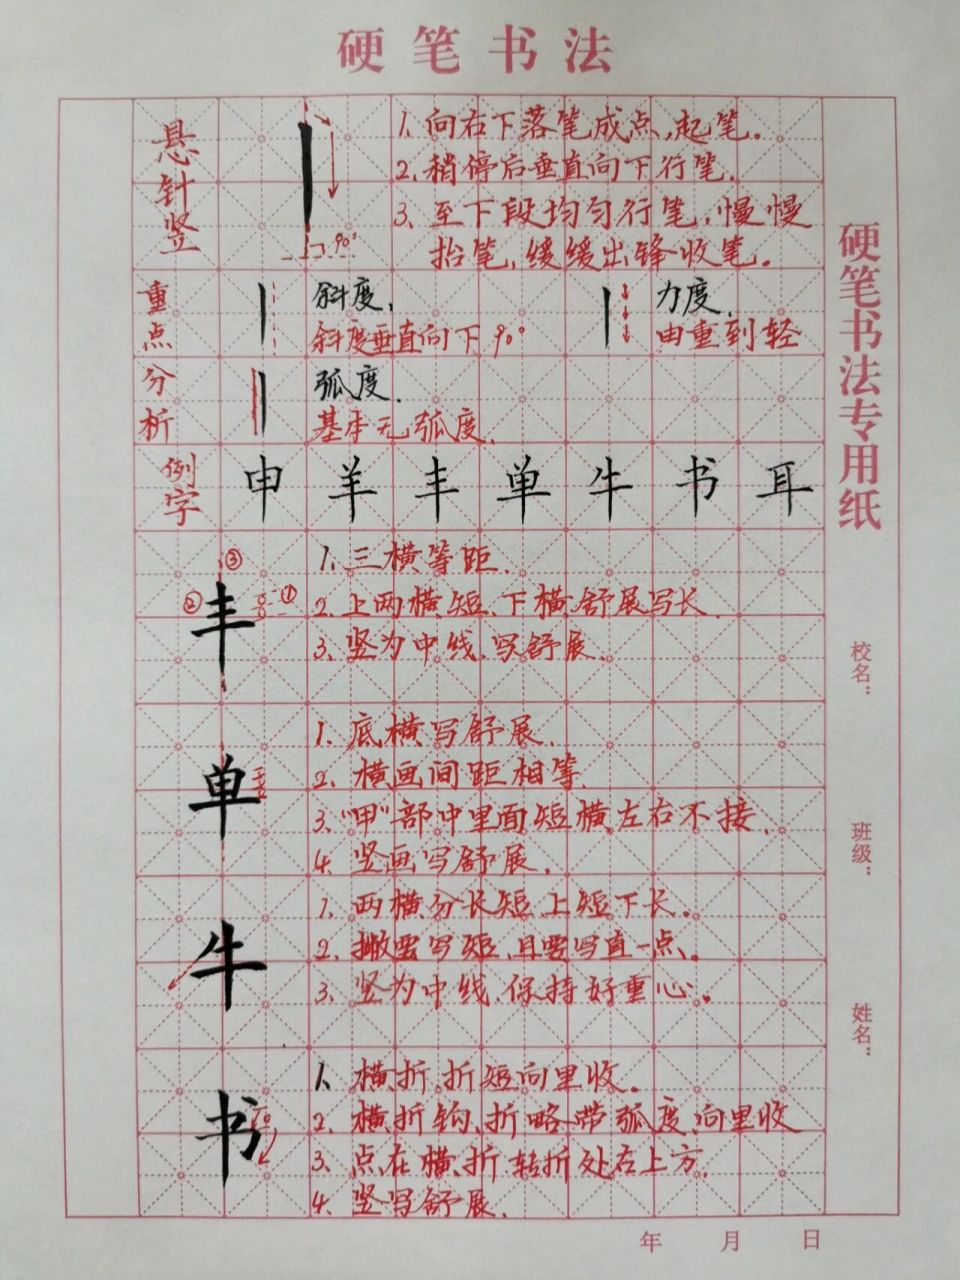 硬笔书法
悬针竖
90°
1. 向右下落笔成点,起笔。
2. 稍停后垂直向下行笔.
3. 至下段均匀行笔,慢慢
抬笔,缓缓出锋收笔。
重点分析
斜度.
斜度垂直向下90°
力度.
由重到轻
弧度.
基本无弧度.
例字
申 羊 丰 单 牛 书 耳
丰
① ② ③
1. 三横等距.
2. 上两横短.下横舒展写长
3. 竖为中线.写舒展.
单
1. 底横写舒展.
2. 横画间距相等.
3. "甲"部中里面短横左右不接.
4. 竖画写舒展.
牛
1. 两横分长短.上短下长。
2. 撇要写短.且要写直一点。
3. 竖为中线.保持好重心。
书
1. 横折.折短向里收。
2. 横折钩.折略带弧度.向里收
3. 点在横.折转折处右上方.
4. 竖写舒展.
硬笔书法专用纸
校名:
班级:
姓名:
年 月 日